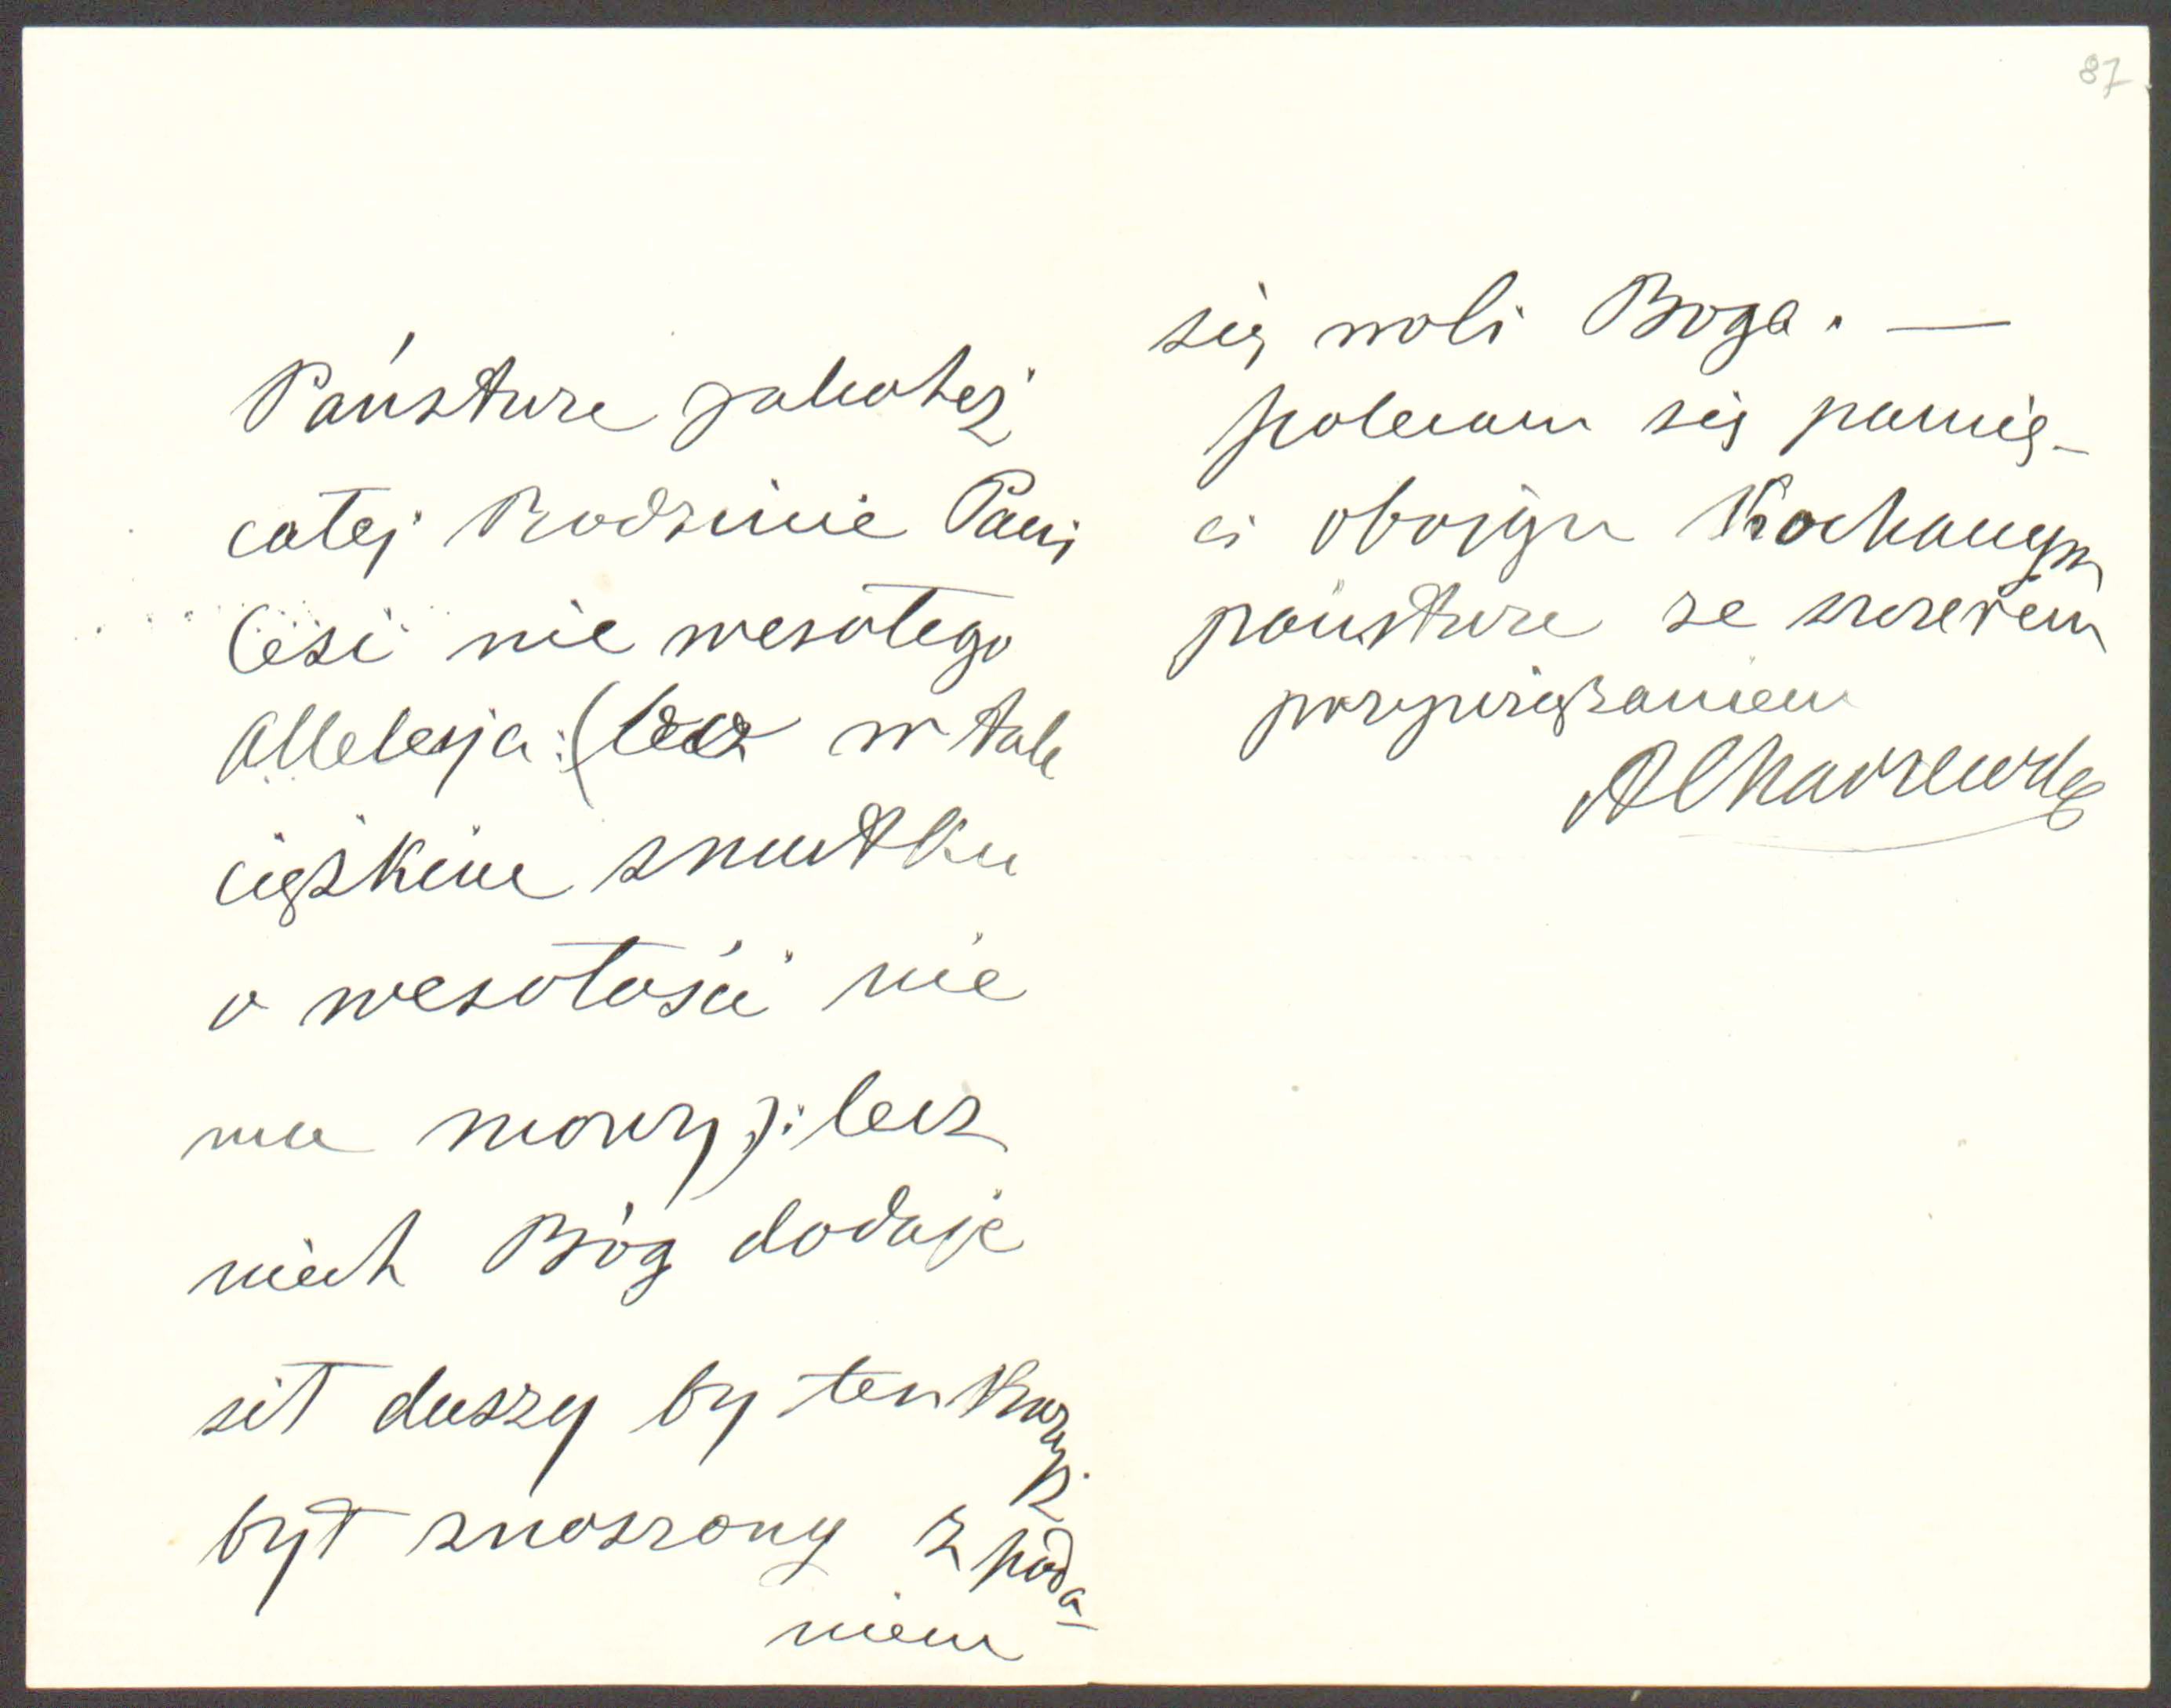 Państwu jakoteż
całej Rodzinie Pani
Cesi nie wesołego
Alleluja :(bo w tak
ciężkim smutku
o wesołości nie
ma mowy): lecz
niech Bóg dodaje
sił duszy by ten Krzyż
był znoszony z podda-
niem
87
się woli Boga. —
Polecam się pamię-
ci obojgu Kochanym
państwu ze szczerem
przywiązaniem